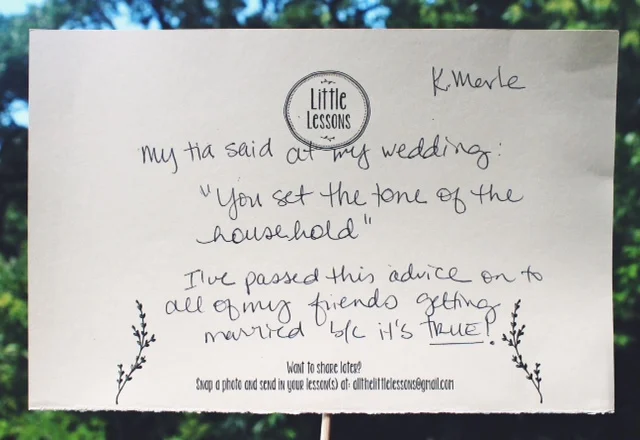 K. Merle
Little
Lessons
My tia said at my wedding:
"You set the tone of the
household"
I've passed this advice on to
all of my friends getting
married b/c it's TRUE!
Want to share later?
Snap a photo and send in your lesson(s) at: allthelittlelessons@gmail.com